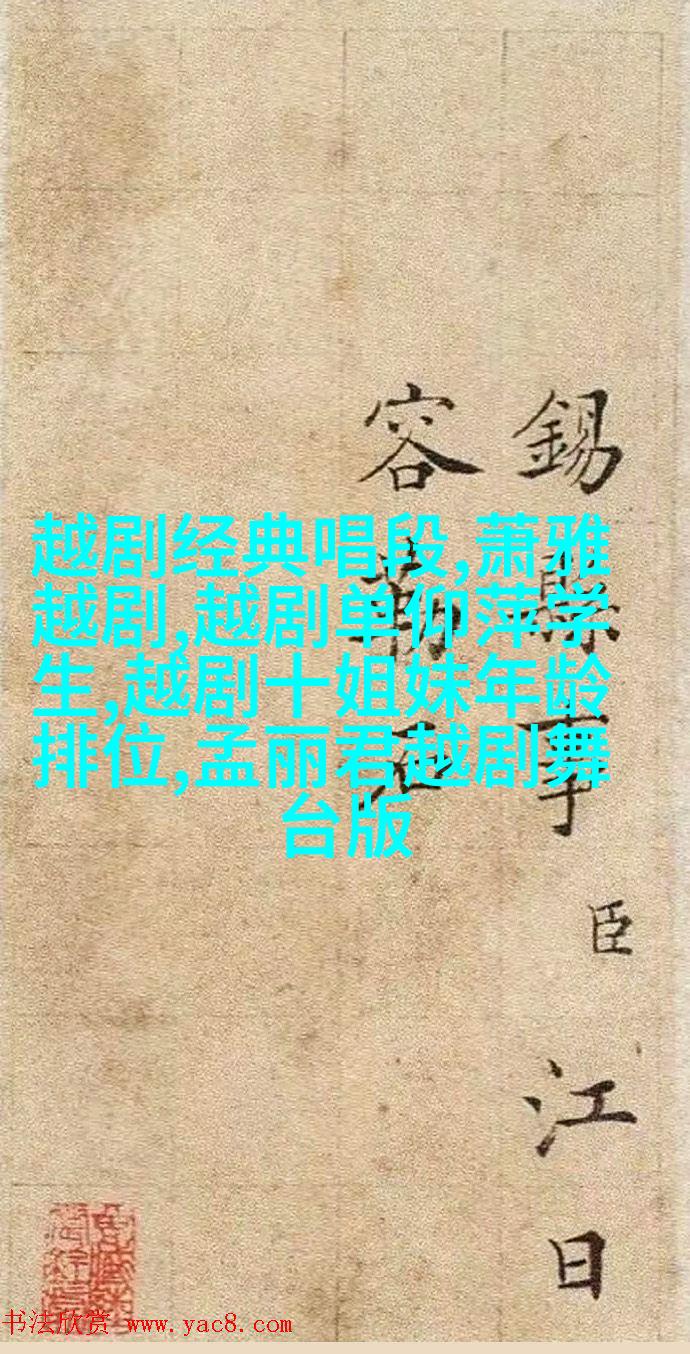 越剧经典唱段,萧雅
越剧,越剧单仰萍学
生,越剧十姐妹年龄
排位,孟丽君越剧舞
台版
錫縣事臣江日
容勒
书法欣赏 www.yac8.com